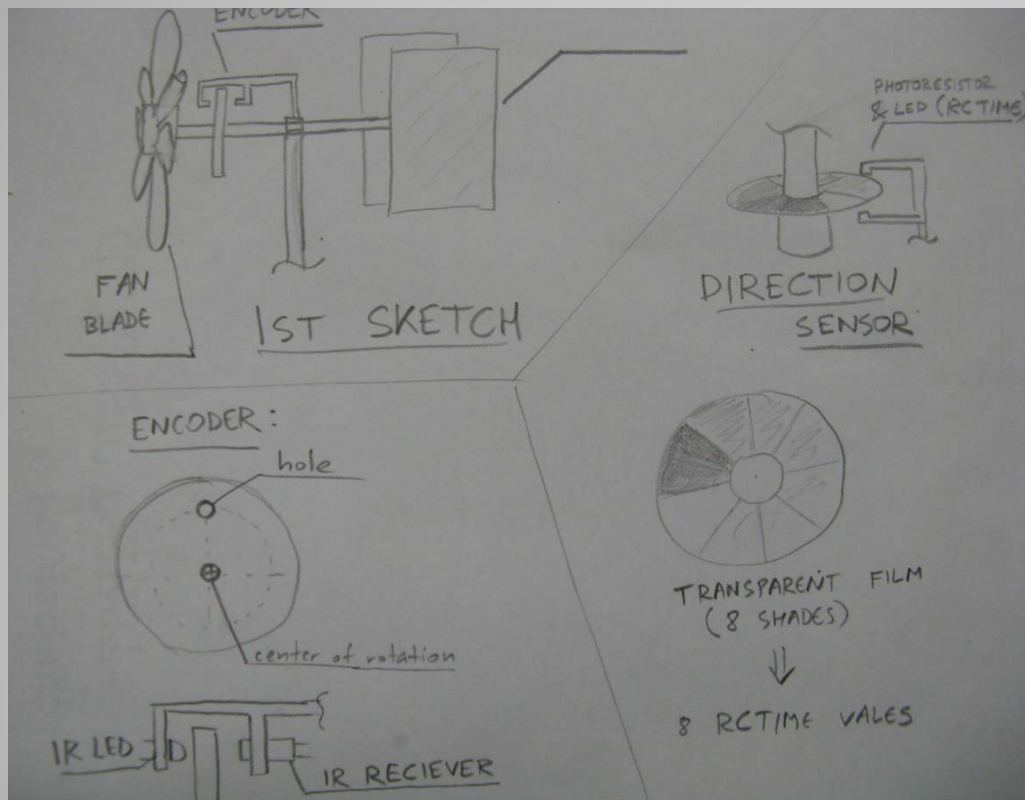 ENCODER
FAN
BLADE
1ST SKETCH
PHOTORESISTOR
& LED (RCTIME)
DIRECTION
SENSOR
ENCODER:
hole
center of rotation
IR LED
IR RECIEVER
TRANSPARENT FILM
(8 SHADES)
8 RCTIME VALES